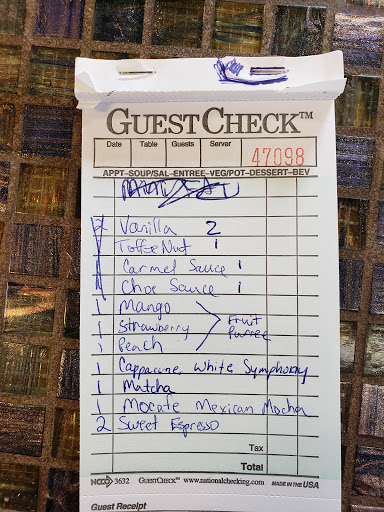 GUEST CHECK™
Date Table Guests Server
47098
APPT-SOUP/SAL-ENTREE-VEG/POT-DESSERT-BEV
Vanilla 2
Toffe Nut 1
Carmel Sauce 1
Choc Sauce 1
1 Mango
1 Strawberry > Fruit Puree
1 Peach
1 Cappacine White Symphony
1 Matcha
1 Mocafe Mexican Mocha
2 Sweet Espresso
Tax
Total
NCCO 3632 GUESTCHECK™ www.nationalchecking.com MADE IN THE USA
Guest Receipt